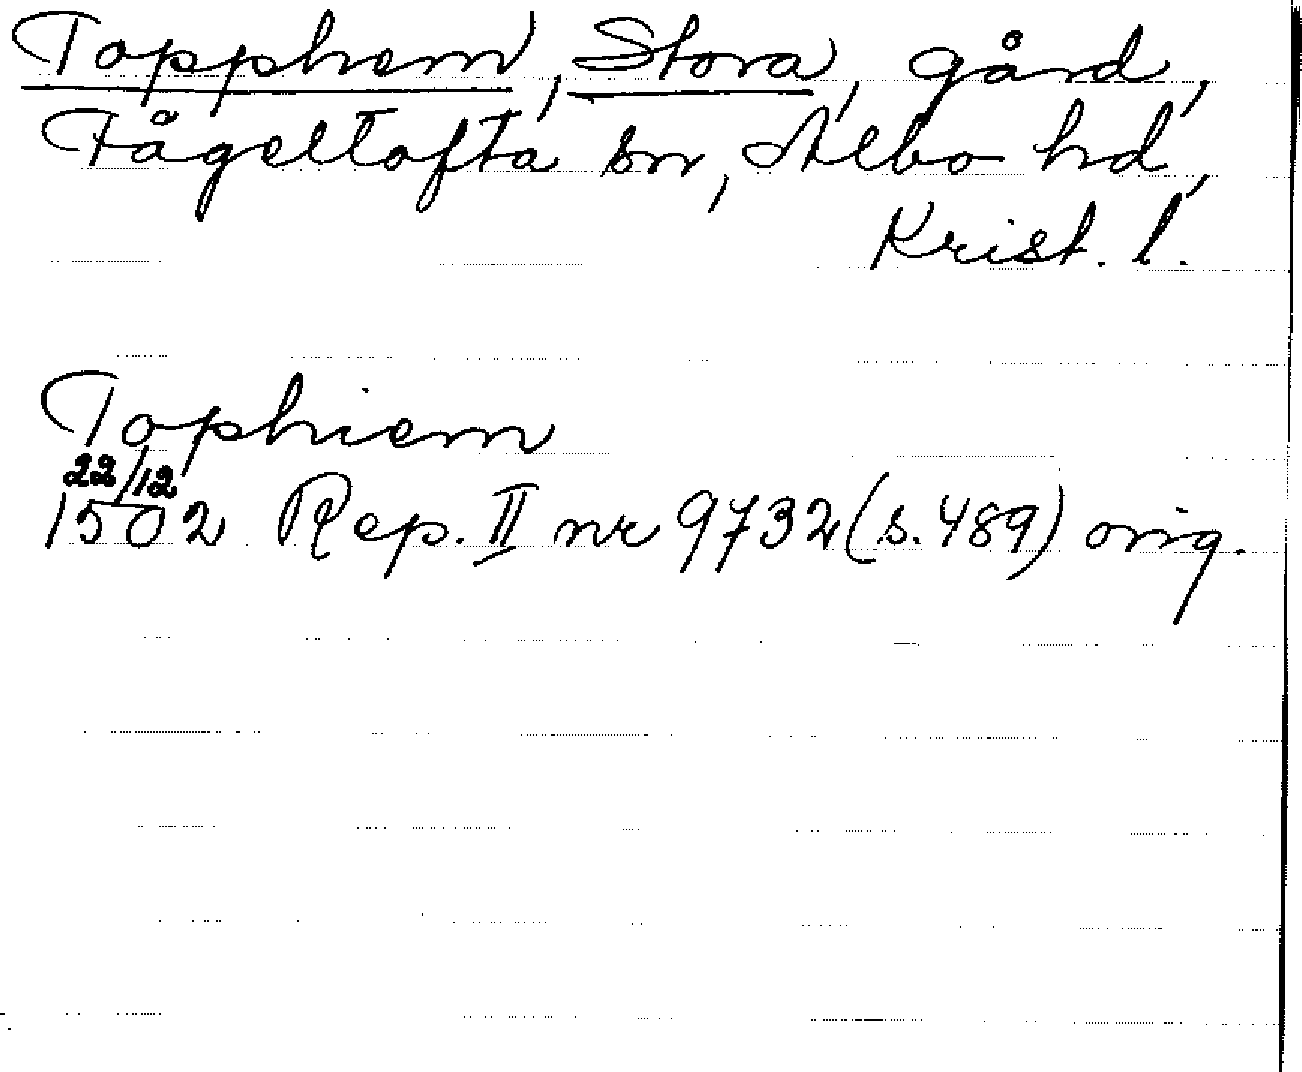 Topphem, Stora, gård,
Fågeltofta sn, Albo hd,
Krist. l.
Tophiem
22/12
1502 Rep. II nr 9732 (s. 489) orig.